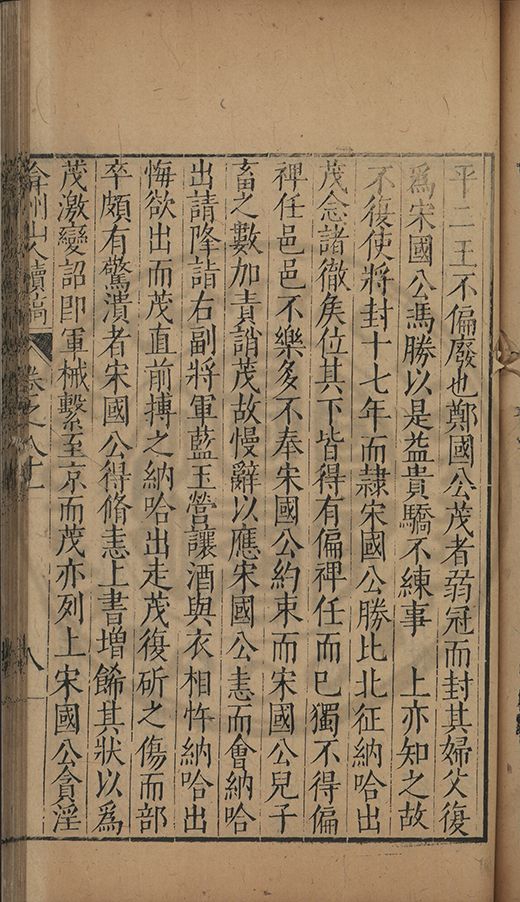 平二王不偏廢也鄭國公茂者弱冠而封其婦父復
爲宋國公馮勝以是益貴驕不練事　上亦知之故
不復使將封十七年而隷宋國公勝比北征納哈出
茂念諸徹矦位其下皆得有偏裨任而已獨不得偏
裨任邑邑不樂多不奉宋國公約束而宋國公兒子
畜之數加責誚茂故慢辭以應宋國公恚而會納哈
出請降詣右副將軍藍玉營讓酒與衣相忤納哈出
悔欲出而茂直前搏之納哈出走茂復斫之傷而部
卒頗有驚潰者宋國公得脩恚上書增餙其狀以爲
茂激變詔卽軍械繫至京而茂亦列上宋國公貪淫
弇州山人續稿　卷之八十一　八